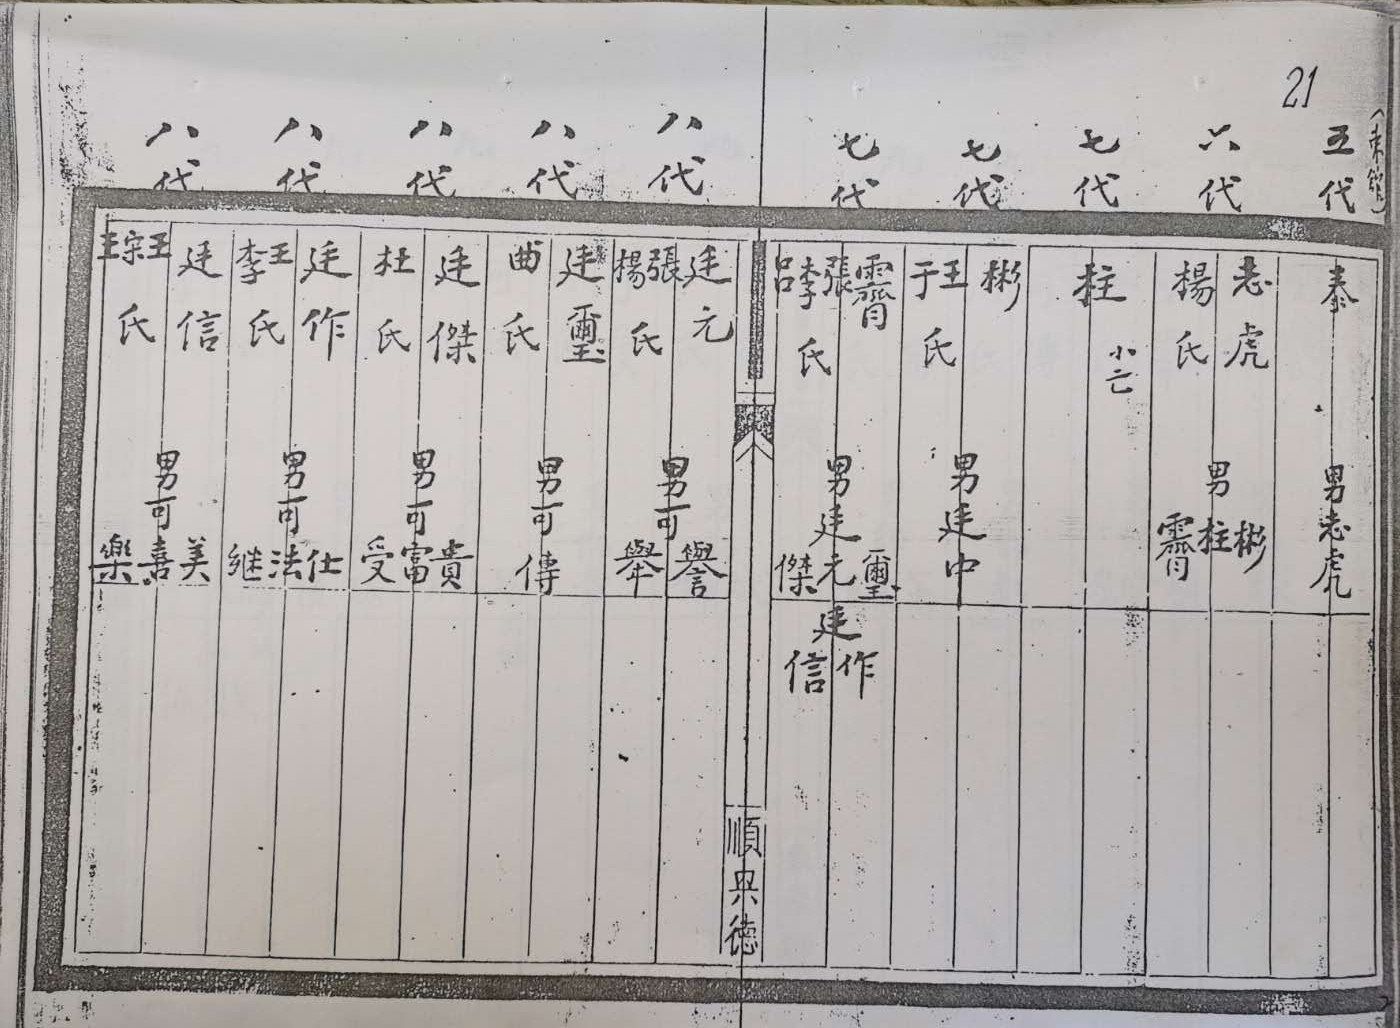 21
五代
泰
男志虎
六代
志虎
楊氏
男彬
柱
霽
七代
柱
小亡
七代
彬
王于氏
男廷中
七代
霽
張李呂氏
男廷元
璽
傑
廷作
信
順興德
八代
廷元
張楊氏
男可譽
舉
八代
廷璽
曲氏
男可傳
八代
廷傑
杜氏
男可貴
富
受
八代
廷作
王李氏
男可仕
法
継
八代
廷信
王宗王氏
男可美
喜
樂